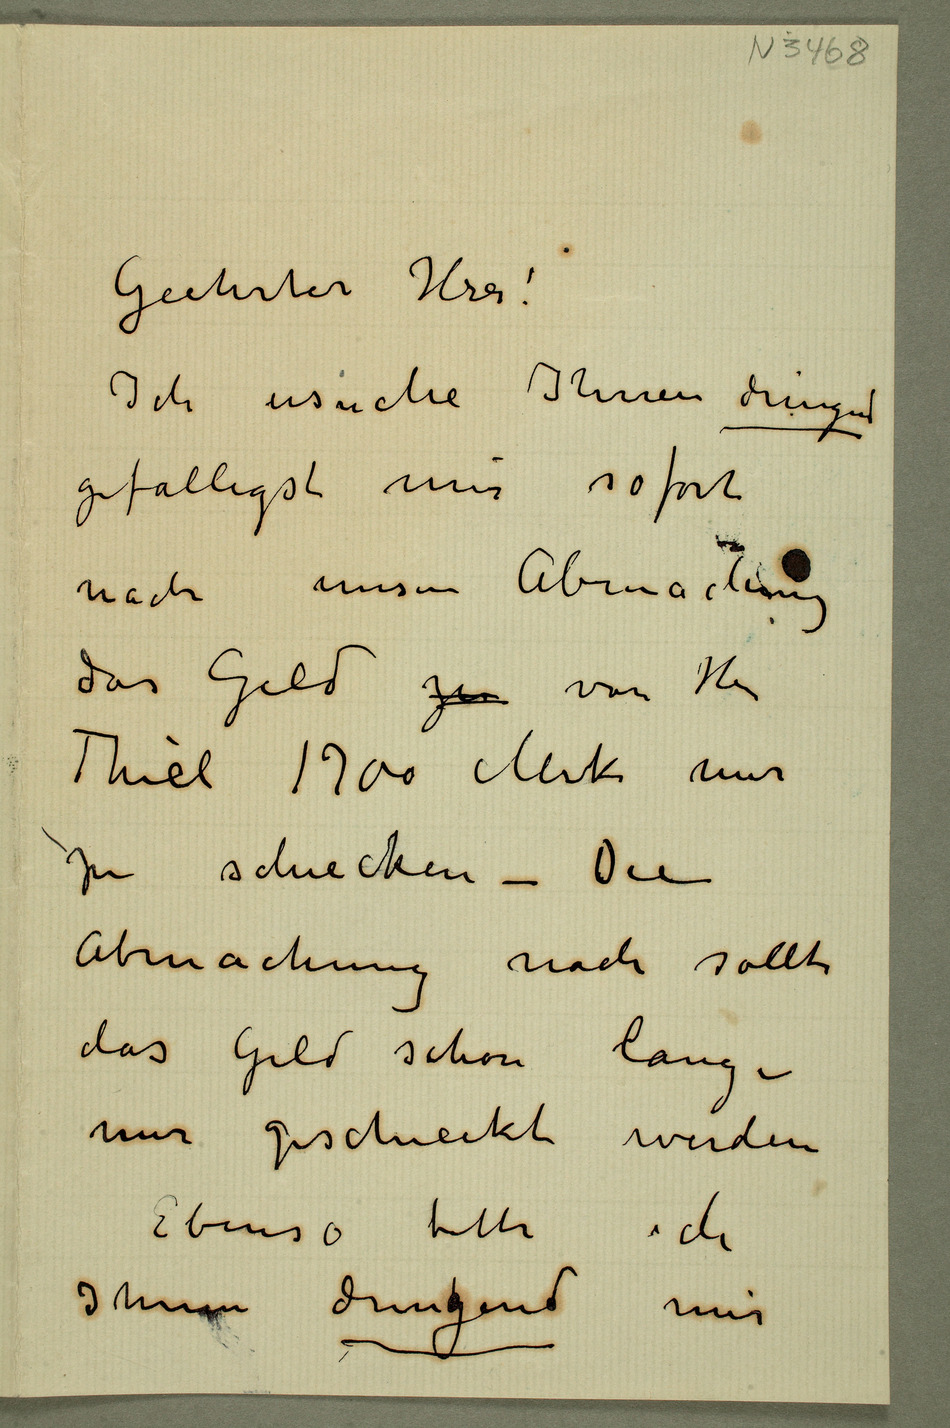 N 3468
Geehrter Herr!
Ich ersuche Ihnen dringend
gefälligst mir sofort
nach unsen Abmachung
das Geld zu von Herr
Thiel 1700 Mark mir
zu schiecken – Die
Abmachung nach sollte
das Geld schon lange
mir geschieckt werden
Ebenso bitte ich
Ihnen dringend mir